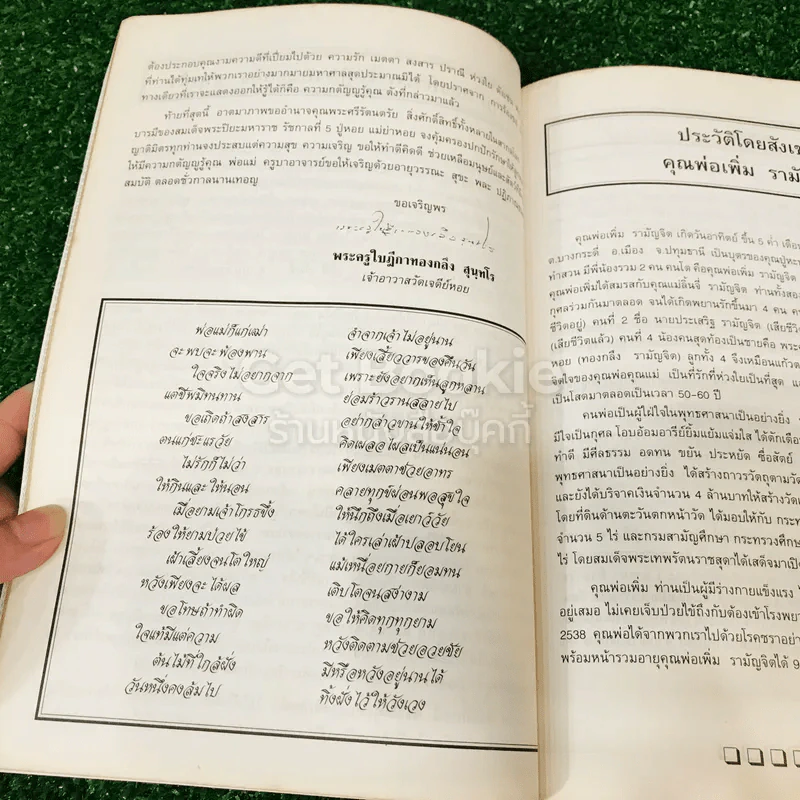 ต้องประกอบคุณงามความดีที่เปี่ยมไปด้วย ความรัก เมตตา สงสาร ปราณี ห่วงใย
ที่ท่านได้ทุ่มเทให้พวกเราอย่างมากมายมหาศาลสุดประมาณมิได้ โดยปราศจาก
ทางเดียวที่เราจะแสดงออกให้รู้ได้ก็คือ ความกตัญญูรู้คุณ ดังที่กล่าวมาแล้ว
ท้ายที่สุดนี้ อาตมาภาพขออำนาจคุณพระศรีรัตนตรัย สิ่งศักดิ์สิทธิ์ทั้งหลายในสากลโลก
บารมีของสมเด็จพระปิยะมหาราช รัชกาลที่ 5 ปู่หอย แม่ย่าหอย จงคุ้มครองปกปักรักษาให้
ญาติมิตรทุกท่านจงประสบแต่ความสุข ความเจริญ ขอให้ทำดีคิดดี ช่วยเหลือมนุษย์และสัตว์
ให้มีความกตัญญูรู้คุณ พ่อแม่ ครูบาอาจารย์ขอให้เจริญด้วยอายุวรรณะ สุขะ พละ
สมบัติ ตลอดชั่วกาลนานเทอญ
ขอเจริญพร
พระครูใบฎีกาทองกลึง สุนฺทโร
เจ้าอาวาสวัดเจดีย์หอย
พ่อแม่ก็แก่เฒ่า จำจากเจ้าไม่อยู่นาน
จะพบจะพ้องพาน เพียงเสี้ยววารของคืนวัน
ใจจริงไม่อยากจาก เพราะยังอยากเห็นลูกหลาน
แต่ชีพมิทนทาน ย่อมร้าวรานสลายไป
ขอเถิดถ้าสงสาร อย่ากล่าวขานให้ช้ำใจ
คนแก่ชะแรวัย คิดเผลอไผลเป็นแน่นอน
ไม่รักก็ไม่ว่า เพียงเมตตาช่วยอาทร
ให้กินและให้นอน คลายทุกข์ผ่อนพอสุขใจ
เมื่อยามเจ้าโกรธขึ้ง ให้นึกถึงเมื่อเยาว์วัย
ร้องไห้ยามป่วยไข้ ได้ใครเล่าเฝ้าปลอบโยน
เฝ้าเลี้ยงจนโตใหญ่ แม้เหนื่อยกายก็ยอมทน
หวังเพียงจะได้ผล เติบโตจนสง่างาม
ขอโทษถ้าทำผิด ขอให้คิดทุกทุกยาม
ใจแท้มีแต่ความ หวังติดตามช่วยอวยชัย
ต้นไม้ที่ใกล้ฝั่ง มีหรือหวังอยู่นานได้
วันหนึ่งคงล้มไป ทิ้งฝั่งไว้ให้วังเวง
ประวัติโดยสังเข
คุณพ่อเพิ่ม รามั
คุณพ่อเพิ่ม รามัญจิต เกิดวันอาทิตย์ ขึ้น 5 ค่ำ เดือน
ต.บางกระดี่ อ.เมือง จ.ปทุมธานี เป็นบุตรของคุณปู่
ทำสวน มีพี่น้องรวม 2 คน คนโต คือคุณพ่อเพิ่ม รามัญจิต
คุณพ่อเพิ่มได้สมรสกับ คุณแม่ลิ้นจี่ รามัญจิต ท่านทั้งสอง
กุศลร่วมกันมาตลอด จนได้เกิดพยานรักขึ้นมา 4 คน
ชีวิตอยู่) คนที่ 2 ชื่อ นายประเสริฐ รามัญจิต (เสีย
(เสียชีวิตแล้ว) คนที่ 4 น้องคนสุดท้องเป็นชายคือ
หอย (ทองกลึง รามัญจิต) ลูกทั้ง 4 จึงเหมือนแก้ว
จิตใจของคุณพ่อคุณแม่ เป็นที่รักที่ห่วงใยเป็นที่สุด
เป็นโสดมาตลอดเป็นเวลา 50-60 ปี
คนพ่อเป็นผู้ใฝ่ใจในพุทธศาสนาเป็นอย่างยิ่ง
มีใจเป็นกุศล โอบอ้อมอารีย์ยิ้มแย้มแจ่มใส ได้ตักเตือน
ทำดี มีศีลธรรม อดทน ขยัน ประหยัด ซื่อสัตย์
พุทธศาสนาเป็นอย่างยิ่ง ได้สร้างถาวรวัตถุตามวัด
และยังได้บริจาคเงินจำนวน 4 ล้านบาทให้สร้างวัด
โดยที่ดินด้านตะวันตกหน้าวัด ได้มอบให้กับ
จำนวน 5 ไร่ และกรมสามัญศึกษา กระทรวงศึกษา
ไร่ โดยสมเด็จพระเทพรัตนราชสุดาได้เสด็จมา
คุณพ่อเพิ่ม ท่านเป็นผู้มีร่างกายแข็งแรง
อยู่เสมอ ไม่เคยเจ็บป่วยไข้ถึงกับต้องเข้าโรงพยา
2538 คุณพ่อได้จากพวกเราไปด้วยโรคชราอย่าง
พร้อมหน้ารวมอายุคุณพ่อเพิ่ม รามัญจิตได้ 9
Get Bookie
ร้านหนังสือบุ๊คกี้